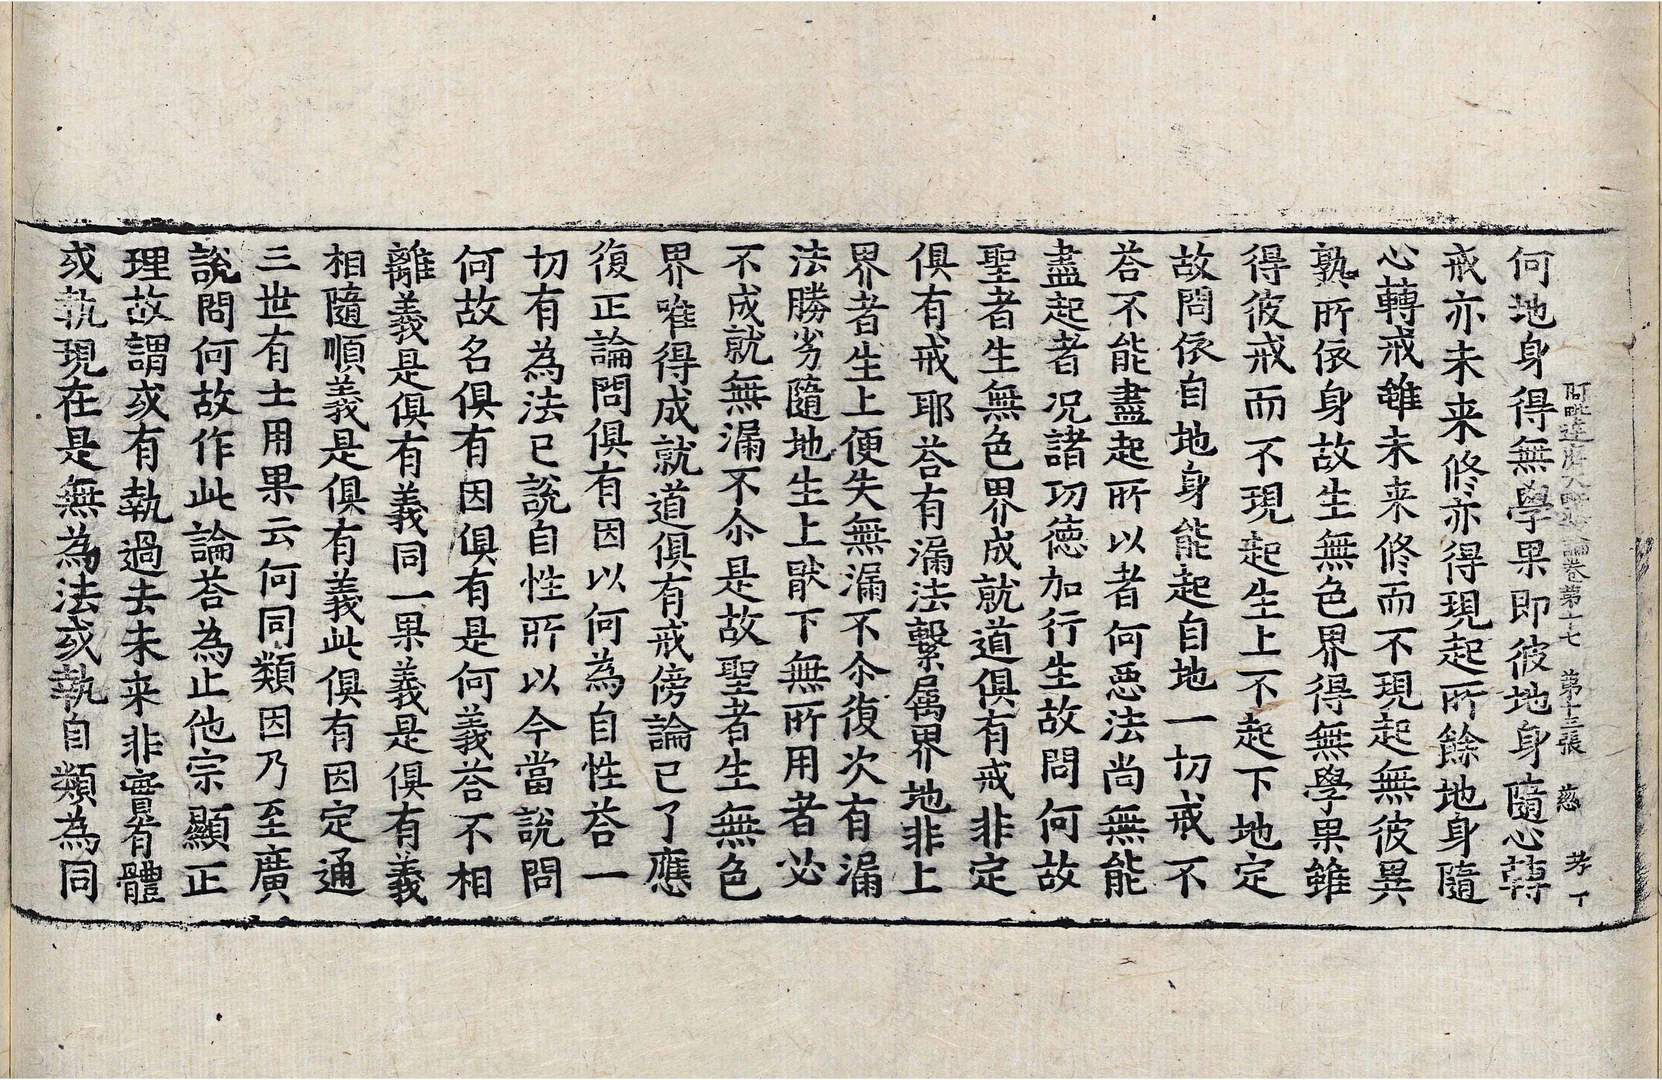 阿毗達磨大毗婆沙論卷第十七 第十三張 慈 孝丁
何地身得無學果即彼地身隨心轉
戒亦未来修亦得現起所餘地身隨
心轉戒雖未来修而不現起無彼異
熟所依身故生無色界得無學果雖
得彼戒而不現起生上不起下地定
故問依自地身能起自地一切戒不
荅不能盡起所以者何惡法尚無能
盡起者况諸功德加行生故問何故
聖者生無色界成就道俱有戒非定
俱有戒耶荅有漏法繫屬界地非上
界者生上便失無漏不尒復次有漏
法勝劣隨地生上猒下無所用者必
不成就無漏不尒是故聖者生無色
界唯得成就道俱有戒傍論已了應
復正論問俱有因以何為自性荅一
切有為法已說自性所以今當說問
何故名俱有因俱有是何義荅不相
離義是俱有義同一果義是俱有義
相隨順義是俱有義此俱有因定通
三世有士用果云何同類因乃至廣
說問何故作此論荅為止他宗顯正
理故謂或有執過去未来非實有體
或執現在是無為法或執自類為同